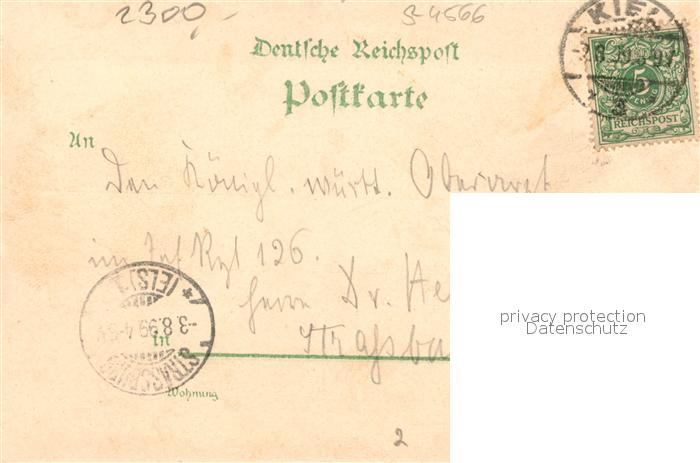 2300,-
S-4566
Deutsche Reichspost
Postkarte
KIEL
5
REICHSPOST
An
Den Königl. württ. Oberarzt
im Inf Rgt 126.
Herrn Dr. He
Straßbu
in
STRASSBURG (ELS) 1
-3.8.99.4-5
Wohnung
privacy protection
Datenschutz
2